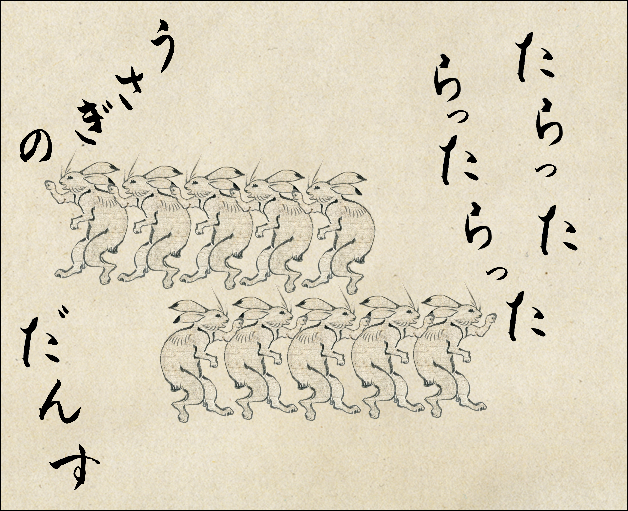 たらった
らったらった
うさぎの
だんす